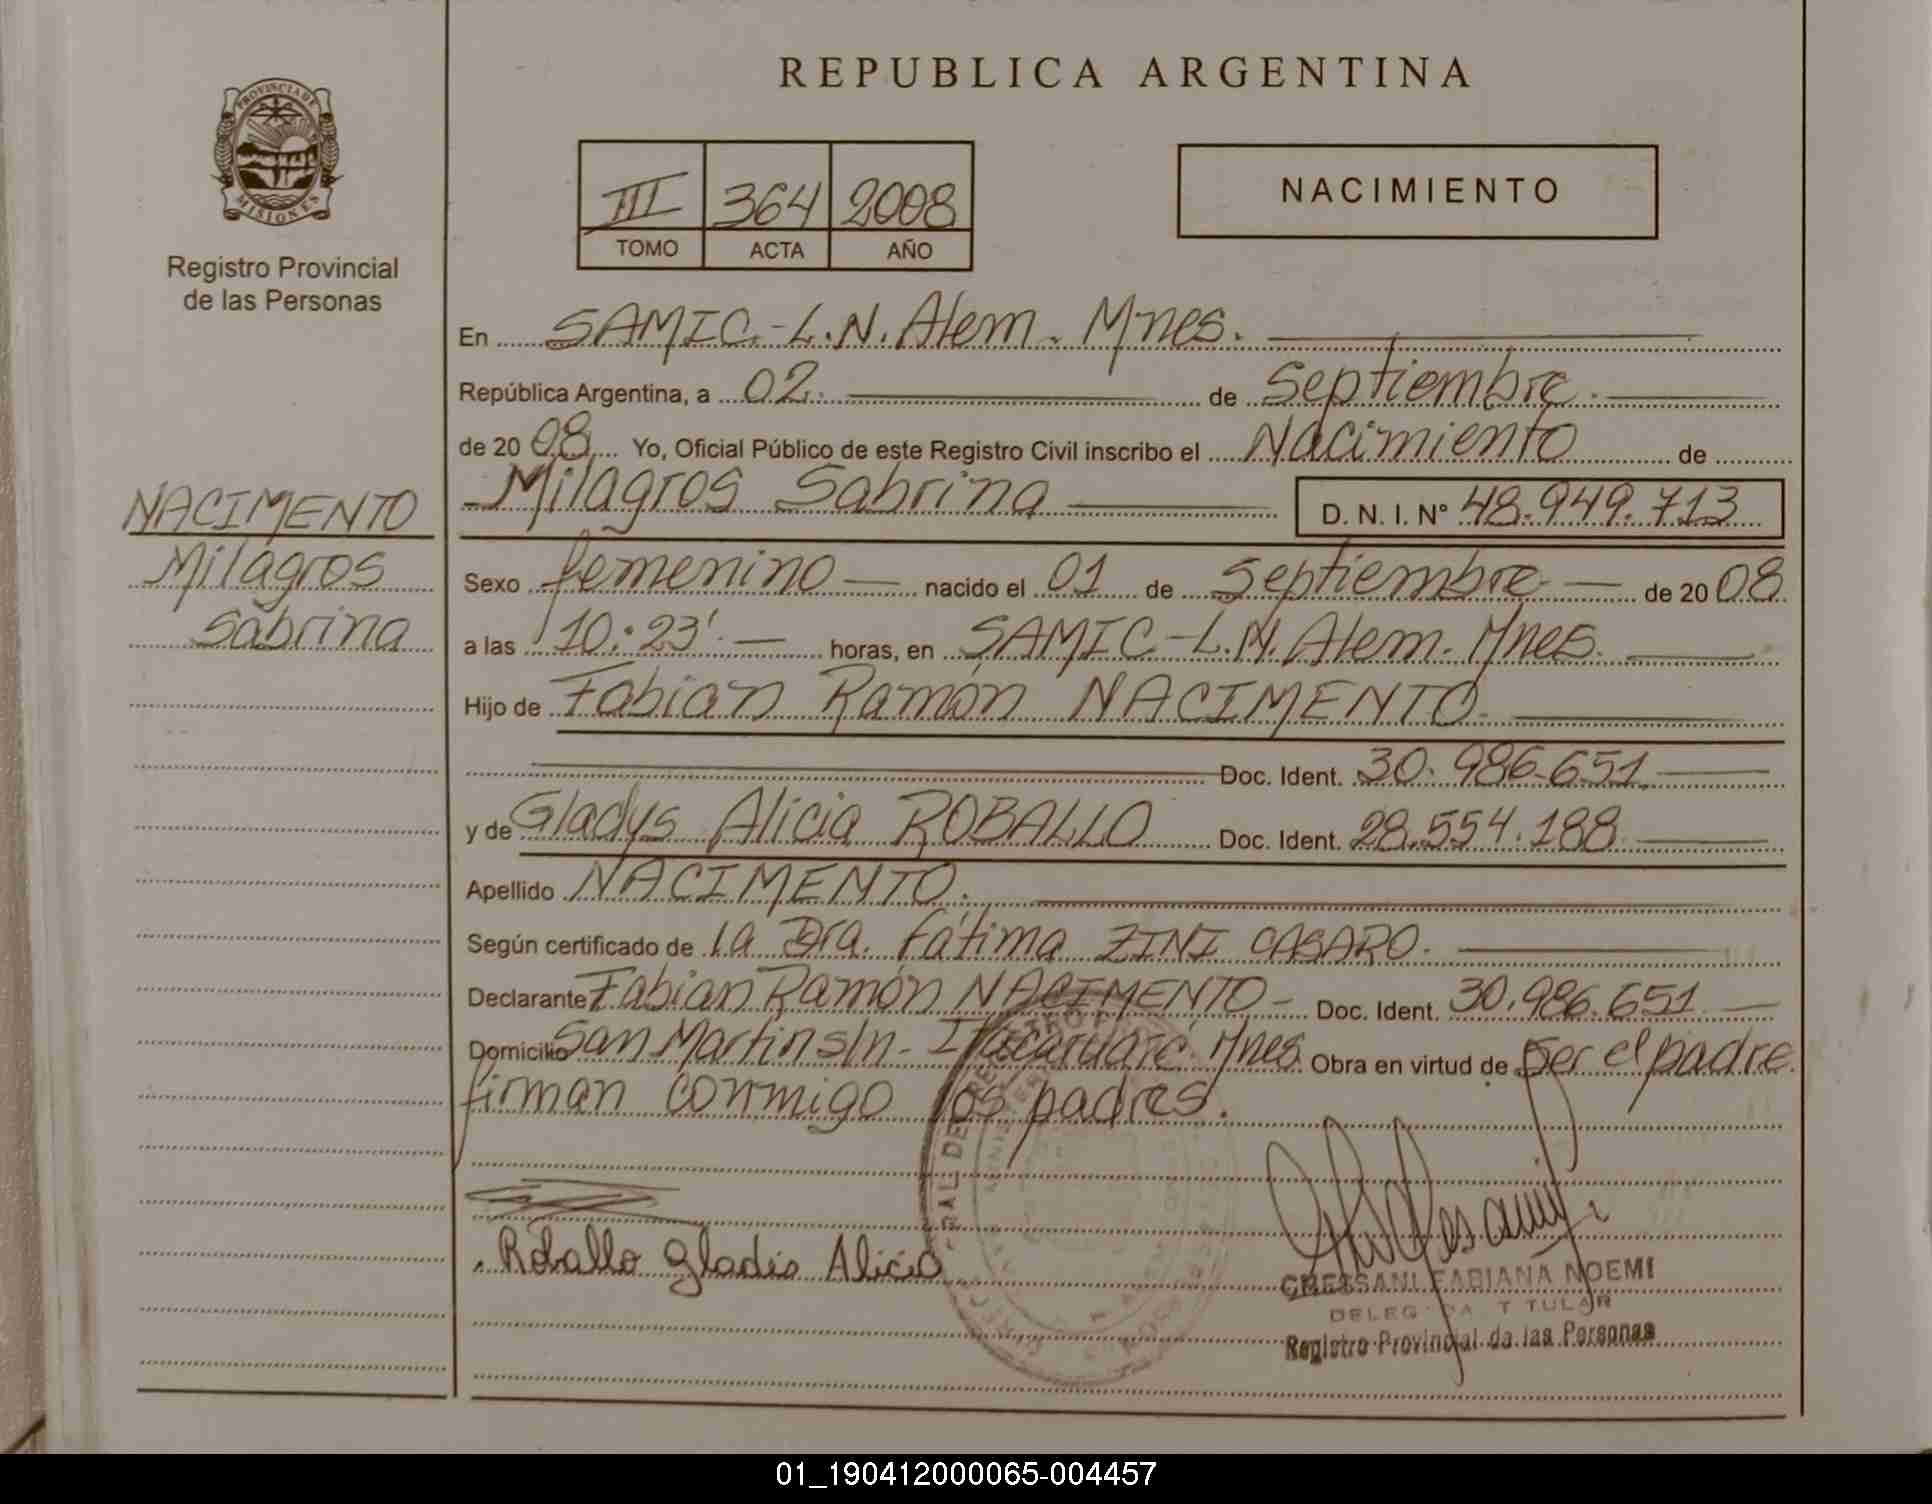 REPUBLICA ARGENTINA
PROVINCIA DE
MISIONES
Registro Provincial
de las Personas
III 364 2008
TOMO ACTA AÑO
NACIMIENTO
En SAMIC.-L.N. Alem. Mnes.
República Argentina, a 02. de Septiembre.
de 20 08 Yo, Oficial Público de este Registro Civil inscribo el Nacimiento de
Milagros Sabrina D. N. I. N° 48.949.713
NACIMENTO
Milagros
Sabrina
Sexo femenino nacido el 01 de Septiembre de 20 08
a las 10:23' horas, en SAMIC-L.N. Alem. Mnes.
Hijo de Fabian Ramón NACIMENTO
Doc. Ident. 30.986.651
y de Gladys Alicia ROBALLO Doc. Ident. 28.554.188
Apellido NACIMENTO.
Según certificado de la Dra. Fátima ZINI CASARO.
Declarante Fabian Ramón NACIMENTO- Doc. Ident. 30.986.651
Domicilio San Martin s/n- Itacaruaré. Mnes. Obra en virtud de Ser el padre.
firman conmigo los padres.
Roballo Gladis Alicia
CHESSANI FABIANA NOEMI
DELEGADA TITULAR
Registro Provincial de las Personas
01_190412000065-004457